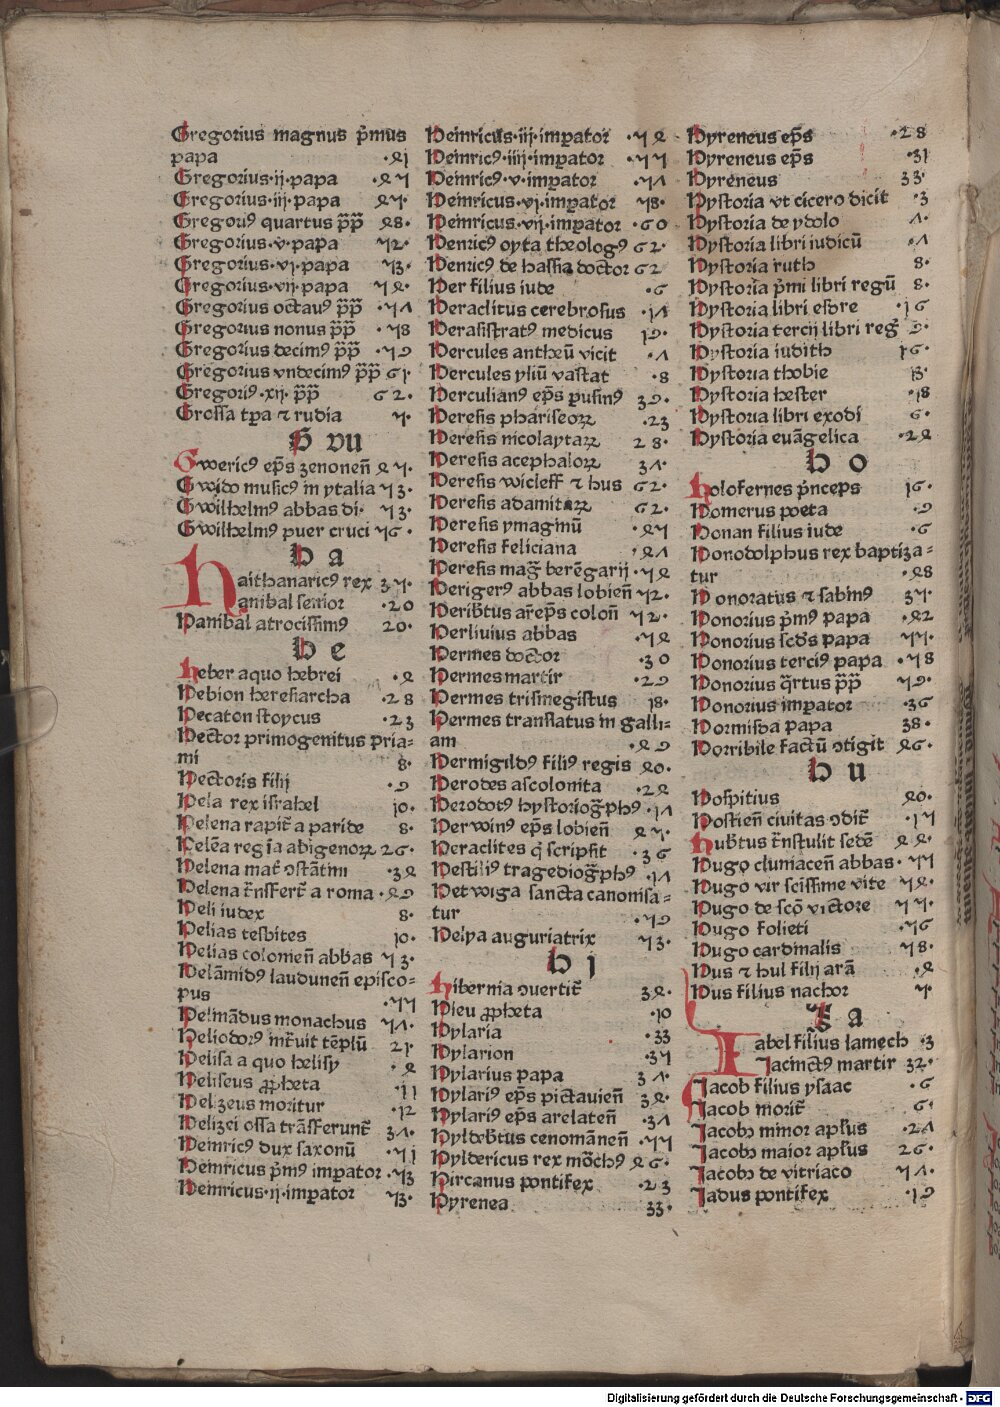 Gregorius magnus p̄mus
papa ·41
Gregorius·ij·papa ·45
Gregorius·iij·papa 45·
Gregoriꝰ quartus p̄p̄ 48·
Gregorius·v·papa 52·
Gregorius·vj·papa 53·
Gregorius·vij·papa 54·
Gregorius octauꝰ p̄p̄ ·57
Gregorius nonus p̄p̄ ·58
Gregorius decimꝰ p̄p̄ ·59
Gregorius vndecimꝰ p̄p̄ 61·
Gregoriꝰ·xij·p̄p̄ 62·
Grossa tꝑa ⁊ rudia 5·
G vu
Gwericꝰ ep̄s zenonen̄ 45·
Gwido musicꝰ in ytalia 53·
Gwilhelmꝰ abbas di· 53·
Gwilhelmꝰ puer cruci 56·
H a
Haithanaricꝰ rex 35·
Hanibal senior ·20
Hanibal atrocissimꝰ 20·
H e
Heber a quo hebrei ·4
Hebion heresiarcha ·28
Hecaton stoycus ·23
Hector primogenitus pria⸗
mi 8·
Hectoris filij ·9
Hela rex israhel 10·
Helena rapit̄ a paride 8·
Helēa regīa abigenoꝝ 26·
Helena mat̄ ꝯstātini ·34
Helena t̄nsfert̄ a roma ·49
Heli iudex 8·
Helias tesbites 10·
Helias colonien̄ abbas 53·
Helāmidꝰ laudunen̄ episco⸗
pus ·55
Helmādus monachus 57·
Heliodorꝰ int̄uit tēplū 21·
Helisa a quo helisy ·4
Heliseus ꝓpheta ·11
Helizeus moritur ·12
Helizei ossa trāsferunt̄ 37·
Heinricꝰ dux saxonū ·51
Heinricus p̄mꝰ imꝑator ·53
Heinricus·ij·imꝑator 53·
Heinricus·iij·imꝑator ·54
Heinricꝰ·iiij·imꝑator ·55
Heinricꝰ·v·imꝑator ·57
Heinricus·vj·imꝑator 58·
Heinricus·vij·imꝑator ·60
Henricꝰ oyta theologꝰ 62·
Henricꝰ de hassia doctor 62
Her filius iude ·6
Heraclitus cerebrosus ·17
Herasistratꝰ medicus 19·
Hercules antheū vicit ·7
Hercules yliū vastat ·8
Herculianꝰ ep̄s ꝑusinꝰ 39·
Heresis phariseoꝝ ·23
Heresis nicolaytaꝝ 28·
Heresis acephaloꝝ 37·
Heresis wicleff ⁊ hus 62·
Heresis adamitaꝝ 62·
Heresis ymaginū ·45
Heresis feliciana ·47
Heresis maḡ berēgarij ·54
Herigerꝰ abbas lobien̄ 52·
Herib̄tus ar̄ep̄s colon̄ 52·
Herliuius abbas ·54
Hermes doctor ·30
Hermes martir ·29
Hermes trismegistus 18·
Hermes translatus in galli⸗
am ·49
Hermigildꝰ filiꝰ regis 40·
Herodes ascolonita ·24
Herodotꝰ hystorioḡphꝰ ·17
Herwinꝰ ep̄s lobien̄ 45·
Heraclites q̄ scripsit ·36
Hestiliꝰ tragedioḡphꝰ ·17
Hetwiga sancta canonisa⸗
tur ·59
Helya auguriatrix 53·
H i
Hibernia ꝯuertit̄ 34·
Hieu ꝓpheta ·10
Hylaria ·33
Hylarion ·35
Hylarius papa 37·
Hylariꝰ ep̄s pictauien̄ 34·
Hylariꝰ ep̄s arelaten̄ ·37
Hyldeb̄tus cenomānen̄ ·55
Hyldericus rex mōchꝰ 46·
Hircanus pontifex ·23
Hyrenea 33·
Hyreneus ep̄s ·28
Hyreneus ep̄s ·31
Hyreneus 33·
Hystoria vt cicero dicit ·3
Hystoria de ydolo 7·
Hystoria libri iudicū ·7
Hystoria ruth 8·
Hystoria p̄mi libri regū 8·
Hystoria libri esdre ·16
Hystoria tercij libri reḡ 9·
Hystoria iudith 16·
Hystoria thobie 13·
Hystoria hester ·18
Hystoria libri exodi 6·
Hystoria euāgelica ·24
H o
Holofernes p̄nceps 16·
Homerus poeta ·9
Honan filius iude ·6
Honodolphus rex baptiza⸗
tur ·48
Honoratus ⁊ sabinꝰ 35·
Honorius p̄mꝰ papa ·42
Honorius scd̄s papa 55·
Honorius terciꝰ papa ·58
Honorius q̄rtus p̄p̄ 59·
Honorius imꝑator ·36
Hormisda papa 38·
Horribile factū ꝯtigit 46·
H u
Hospitius 40·
Hostien̄ ciuitas ꝯdit̄ ·15
Hub̄tus t̄nstulit sedē 44·
Hugo cluniacen̄ abbas·55
Hugo vir scissime vite 54·
Hugo de scō victore 55·
Hugo folieti ·56
Hugo cardinalis 58·
Hus ⁊ hul filij arā ·4
Hus filius nachor 5·
I a
Iabel filius lamech ·3
Iacinctꝰ martir 32·
Iacob filius ysaac ·6
Iacob morit̄ 6·
Iacobꝰ minor apl̄us ·27
Iacobꝰ maior apl̄us 26·
Iacobꝰ de vitriaco 57·
Iadus pontifex ·19
Digitalisierung gefördert durch die Deutsche Forschungsgemeinschaft - DFG